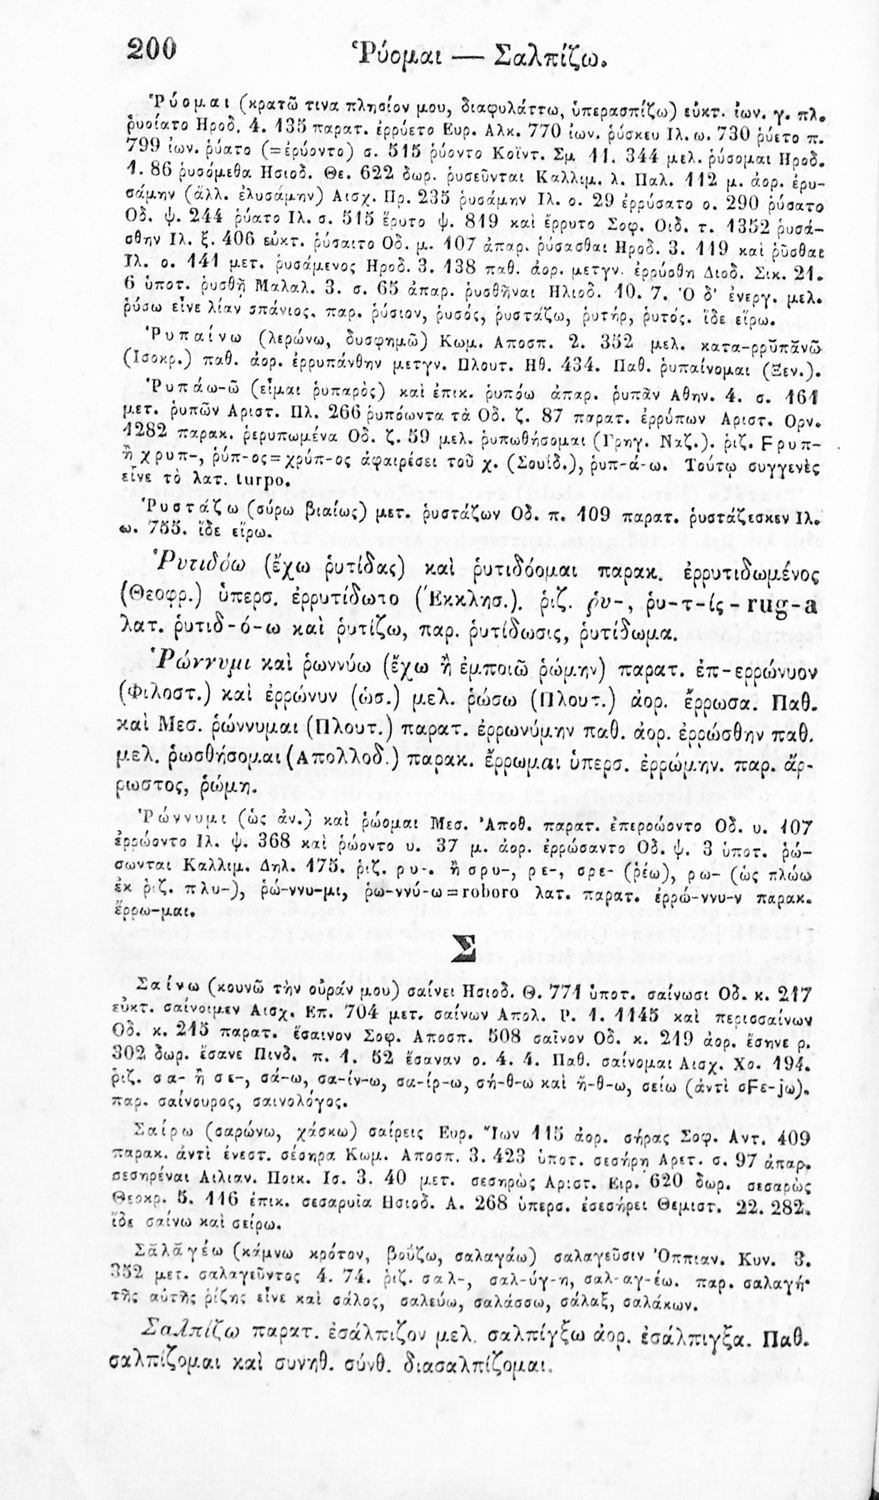 200 Ῥύομαι — Σαλπίζω.
Ῥύομαι (κρατῶ τινα πλησίον μου, διαφυλάττω, ὑπερασπίζω) εὐκτ. ἰων. γ. πλ.
ῥυοίατο Ηροδ. 4. 135 παρατ. ἐρρύετο Ευρ. Αλκ. 770 ἰων. ῥύσκευ Ιλ. ω. 730 ῥύετο π.
799 ἰων. ῥύατο (=ἐρύοντο) σ. 515 ῥύοντο Κοΐντ. Σμ 11. 344 μελ. ῥύσομαι Ηροδ.
1. 86 ῥυσόμεθα Ησιοδ. Θε. 622 δωρ. ῥυσεῦνται Καλλιμ. λ. Παλ. 112 μ. ἀορ. ἐρυ-
σάμην (ἀλλ. ἐλυσάμην) Αισχ. Πρ. 235 ῥυσάμην Ιλ. ο. 29 ἐρρύσατο ο. 290 ῥύσατο
Οδ. ψ. 244 ῥύατο Ιλ. σ. 515 ἔρυτο ψ. 819 καὶ ἔρρυτο Σοφ. Οιδ. τ. 1352 ῥυσά-
σθην Ιλ. ξ. 406 εὐκτ. ῥύσαιτο Οδ. μ. 107 ἀπαρ. ῥύσασθαι Ηροδ. 3. 119 καὶ ῥῦσθαι
Ιλ. ο. 141 μετ. ῥυσάμενος Ηροδ. 3. 138 παθ. ἀορ. μετγν. ἐρρύσθη Διοδ. Σικ. 21.
6 ὑποτ. ῥυσθῇ Μαλαλ. 3. σ. 65 ἀπαρ. ῥυσθῆναι Ηλιοδ. 10. 7. Ὁ δ' ἐνεργ. μελ.
ῥύσω εἶνε λίαν σπάνιος. παρ. ῥύσιον, ῥυσός, ῥυστάζω, ῥυτήρ, ῥυτός. ἴδε εἴρω.
Ῥυπαίνω (λερώνω, δυσφημῶ) Κωμ. Αποσπ. 2. 352 μελ. κατα-ρρῠπᾰνῶ
(Ισοκρ.) παθ. ἀορ. ἐρρυπάνθην μετγν. Πλουτ. Ηθ. 434. Παθ. ῥυπαίνομαι (Ξεν.).
Ῥυπάω-ῶ (εἶμαι ῥυπαρὸς) καὶ ἐπικ. ῥυπόω ἀπαρ. ῥυπᾶν Αθην. 4. σ. 161
μετ. ῥυπῶν Αριστ. Πλ. 266 ῥυπόωντα τὰ Οδ. ζ. 87 παρατ. ἐρρύπων Αριστ. Ορν.
1282 παρακ. ῥερυπωμένα Οδ. ζ. 59 μελ. ῥυπωθήσομαι (Γρηγ. Ναζ.). ῥιζ. Ϝρυπ-
ἢ χρυπ-, ῥύπ-ος=χρύπ-ος ἀφαιρέσει τοῦ χ. (Σουΐδ.), ῥυπ-ά-ω. Τούτῳ συγγενὲς
εἶνε τὸ λατ. turpo.
Ῥυστάζω (σύρω βιαίως) μετ. ῥυστάζων Οδ. π. 109 παρατ. ῥυστάζεσκεν Ιλ.
ω. 755. ἴδε εἴρω.
Ῥυτιδόω (ἔχω ῥυτίδας) καὶ ῥυτιδόομαι παρακ. ἐρρυτιδωμένος
(Θεοφρ.) ὑπερσ. ἐρρυτίδωτο (Ἐκκλησ.). ῥιζ. ῥυ-, ῥυ-τ-ίς-rug-a
λατ. ῥυτιδ-ό-ω καὶ ῥυτίζω, παρ. ῥυτίδωσις, ῥυτίδωμα.
Ῥώννυμι καὶ ῥωννύω (ἔχω ἢ ἐμποιῶ ῥώμην) παρατ. ἐπ-ερρώνυον
(Φιλοστ.) καὶ ἐρρώνυν (ὡσ.) μελ. ῥώσω (Πλουτ.) ἀορ. ἔρρωσα. Παθ.
καὶ Μεσ. ῥώννυμαι (Πλουτ.) παρατ. ἐρρωνύμην παθ. ἀορ. ἐρρώσθην παθ.
μελ. ῥωσθήσομαι (Απολλοδ.) παρακ. ἔρρωμαι ὑπερσ. ἐρρώμην. παρ. ἄρ-
ρωστος, ῥώμη.
Ῥώννυμι (ὡς ἀν.) καὶ ῥώομαι Μεσ. Ἀποθ. παρατ. ἐπερρώοντο Οδ. υ. 107
ἐρρώοντο Ιλ. ψ. 368 καὶ ῥώοντο υ. 37 μ. ἀορ. ἐρρώσαντο Οδ. ψ. 3 ὑποτ. ῥώ-
σωνται Καλλιμ. Δηλ. 175. ῥιζ. ρυ-. ἢ σρυ-, ρε-, σρε- (ῥέω), ρω- (ὡς πλώω
ἐκ ῥιζ. πλυ-), ῥώ-ννυ-μι, ῥω-ννύ-ω=roboro λατ. παρατ. ἐρρώ-ννυ-ν παρακ.
ἔρρω-μαι.
Σ
Σαίνω (κουνῶ τὴν οὐράν μου) σαίνει Ησιοδ. Θ. 771 ὑποτ. σαίνωσι Οδ. κ. 217
εὐκτ. σαίνοιμεν Αισχ. Επ. 704 μετ. σαίνων Απολ. Ρ. 1. 1145 καὶ περισσαίνων
Οδ. κ. 215 παρατ. ἔσαινον Σοφ. Αποσπ. 508 σαῖνον Οδ. κ. 219 ἀορ. ἔσηνε ρ.
302 δωρ. ἔσανε Πινδ. π. 1. 52 ἔσαναν ο. 4. 4. Παθ. σαίνομαι Αισχ. Χο. 194.
ῥιζ. σα- ἢ σε-, σά-ω, σα-ίν-ω, σα-ίρ-ω, σή-θ-ω καὶ ἤ-θ-ω, σείω (ἀντὶ σϜε-jω).
παρ. σαίνουρος, σαινολόγος.
Σαίρω (σαρώνω, χάσκω) σαίρεις Ευρ. Ἴων 115 ἀορ. σήρας Σοφ. Αντ. 409
παρακ. ἀντὶ ἐνεστ. σέσηρα Κωμ. Αποσπ. 3. 423 ὑποτ. σεσήρῃ Αρετ. σ. 97 ἀπαρ.
σεσηρέναι Αιλιαν. Ποικ. Ισ. 3. 40 μετ. σεσηρὼς Αριστ. Ειρ. 620 δωρ. σεσαρὼς
Θεοκρ. 5. 116 ἐπικ. σεσαρυῖα Ησιοδ. Α. 268 ὑπερσ. ἐσεσήρει Θεμιστ. 22. 282.
ἴδε σαίνω καὶ σείρω.
Σᾰλᾰγέω (κάμνω κρότον, βοΰζω, σαλαγάω) σαλαγεῦσιν Ὀππιαν. Κυν. 3.
352 μετ. σαλαγεῦντος 4. 74. ῥιζ. σαλ-, σαλ-ύγ-η, σαλ-αγ-έω. παρ. σαλαγή·
τῆς αὐτῆς ῥίζης εἶνε καὶ σάλος, σαλεύω, σαλάσσω, σάλαξ, σαλάκων.
Σαλπίζω παρατ. ἐσάλπιζον μελ. σαλπίγξω ἀορ. ἐσάλπιγξα. Παθ.
σαλπίζομαι καὶ συνηθ. σύνθ. διασαλπίζομαι.